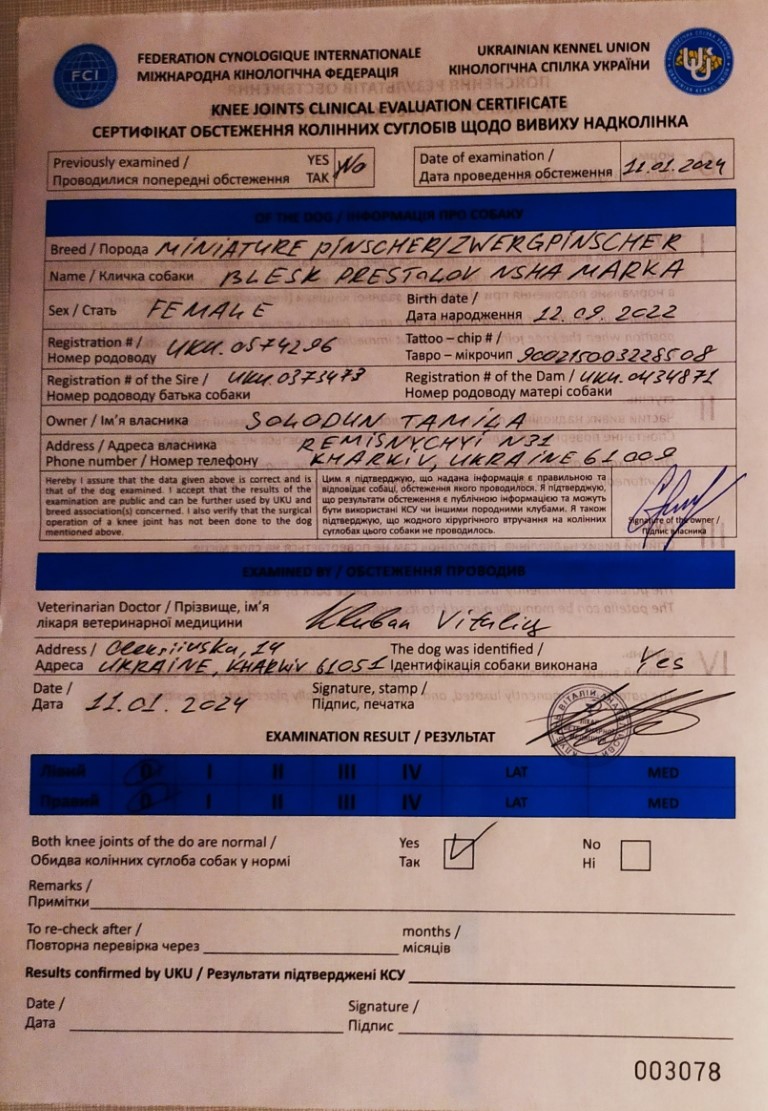 FCI
FEDERATION CYNOLOGIQUE INTERNATIONALE
МІЖНАРОДНА КІНОЛОГІЧНА ФЕДЕРАЦІЯ
UKRAINIAN KENNEL UNION
КІНОЛОГІЧНА СПІЛКА УКРАЇНИ
KNEE JOINTS CLINICAL EVALUATION CERTIFICATE
СЕРТИФІКАТ ОБСТЕЖЕННЯ КОЛІННИХ СУГЛОБІВ ЩОДО ВИВИХУ НАДКОЛІНКА
Previously examined / YES
Проводилися попередні обстеження ТАК No
Date of examination /
Дата проведення обстеження 11.01.2024
OF THE DOG / ІНФОРМАЦІЯ ПРО СОБАКУ
Breed / Порода MINIATURE PINSCHER/ZWERGPINSCHER
Name / Кличка собаки BLESK PRESTaLOV NSHA MARKA
Sex / Стать FEMALE
Birth date /
Дата народження 12.09.2022
Registration # /
Номер родоводу UKU.0574296
Tattoo – chip # /
Тавро – мікрочип 900215003228508
Registration # of the Sire / UKU.0373473
Номер родоводу батька собаки
Registration # of the Dam / UKU.0434871
Номер родоводу матері собаки
Owner / Ім'я власника SOLODUN TAMILA
Address / Адреса власника REMISNYCHYI N31
Phone number / Номер телефону KHARKIV, UKRAINE 61009
Hereby I assure that the data given above is correct and is
that of the dog examined. I accept that the results of the
examination are public and can be further used by UKU and
breed association(s) concerned. I also verify that the surgical
operation of a knee joint has not been done to the dog
mentioned above.
Цим я підтверджую, що надана інформація є правильною та
відповідає собаці, обстеження якого проводилося. Я підтверджую,
що результати обстеження є публічною інформацією та можуть
бути використані КСУ чи іншими породними клубами. Я також
підтверджую, що жодного хірургічного втручання на колінних
суглобах цього собаки не проводилось.
Signature of the owner /
Підпис власника
EXAMINED BY / ОБСТЕЖЕННЯ ПРОВОДИВ
Veterinarian Doctor / Прізвище, ім'я
лікаря ветеринарної медицини Kluban Vitaliy
Address / Oleksiivska, 14
Адреса UKRAINE, KHARKIV 61051
The dog was identified /
Ідентифікація собаки виконана Yes
Date /
Дата 11.01.2024
Signature, stamp /
Підпис, печатка
EXAMINATION RESULT / РЕЗУЛЬТАТ
Лівий 0 I II III IV LAT MED
Правий 0 I II III IV LAT MED
Both knee joints of the do are normal / Yes No
Обидва колінних суглоба собак у нормі Так Ні
Remarks /
Примітки
To re-check after / months /
Повторна перевірка через місяців
Results confirmed by UKU / Результати підтверджені КСУ
Date / Signature /
Дата Підпис
003078